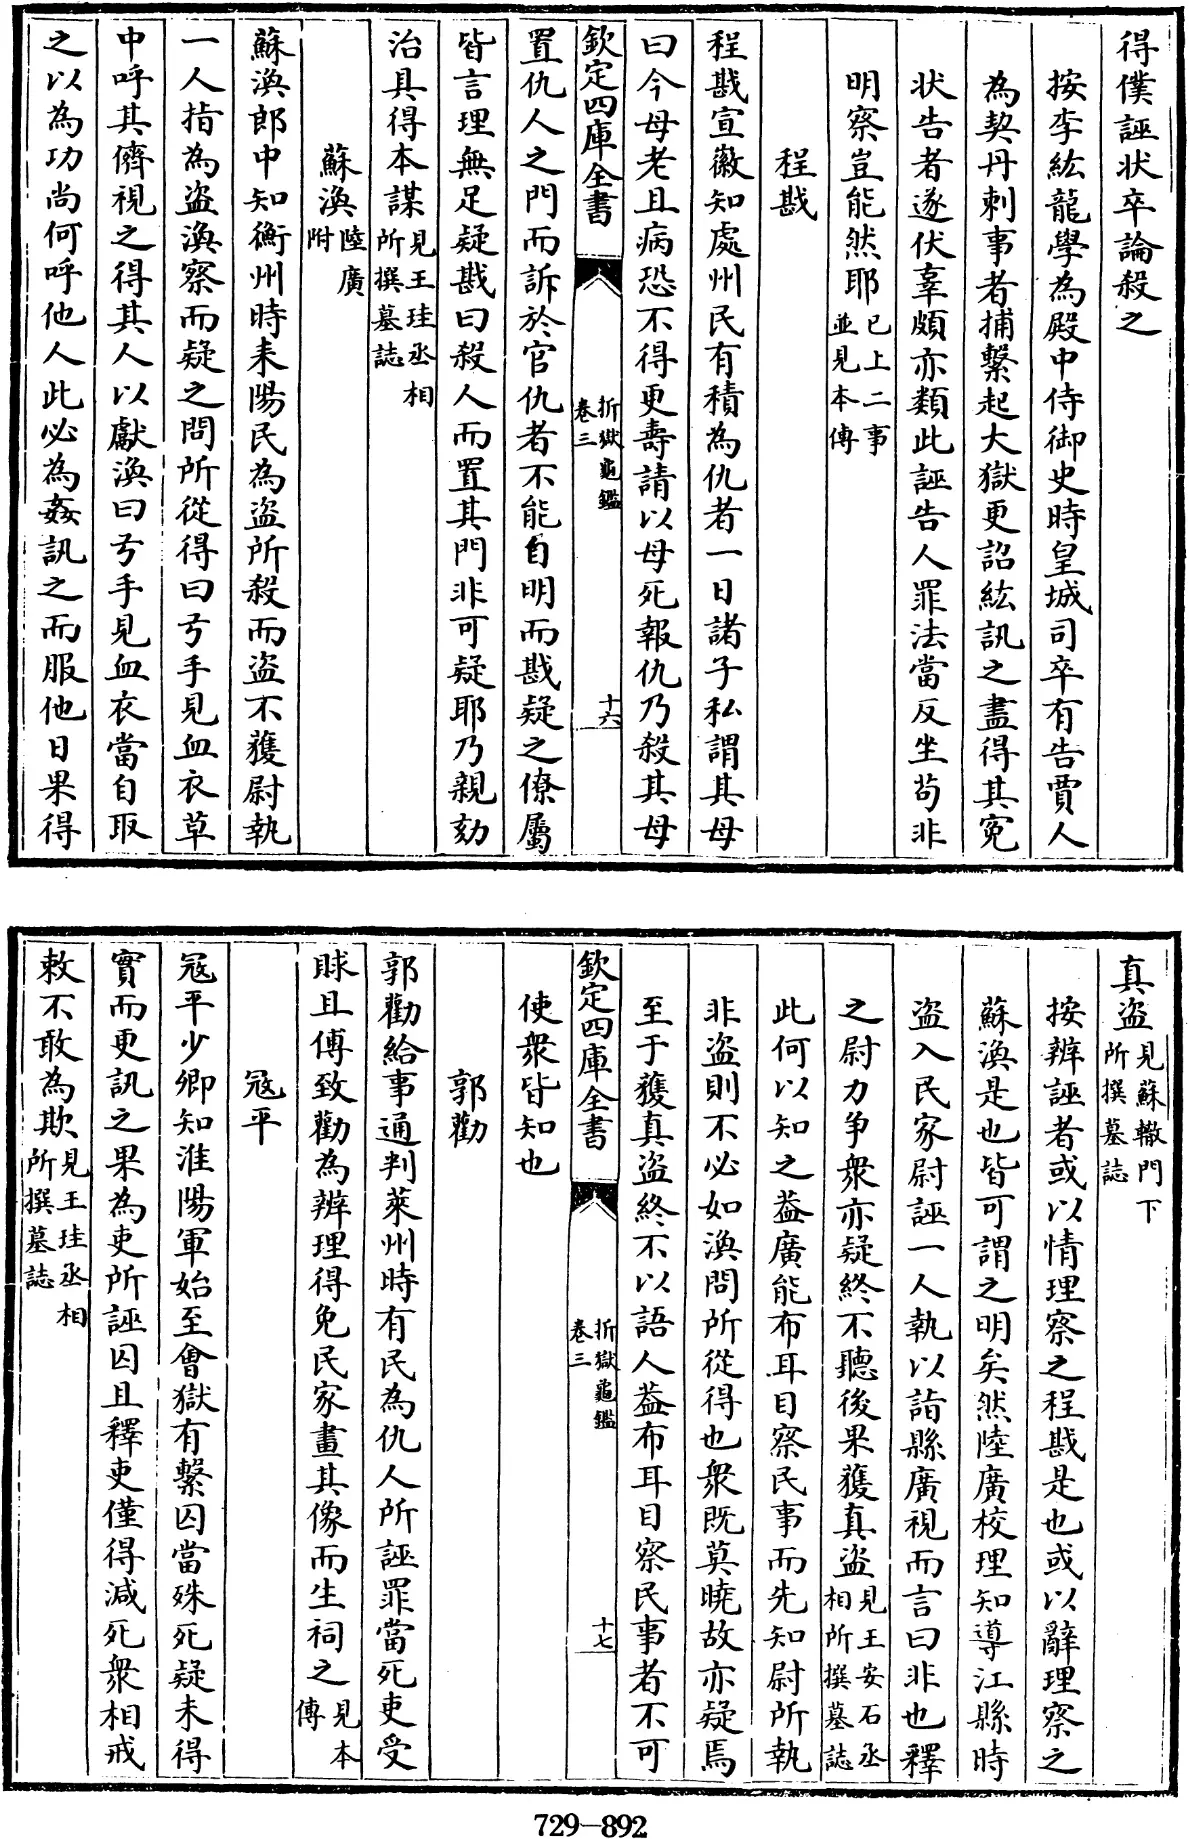 得僕誣状卒論殺之
按李紘龍學為殿中侍御史時皇城司卒有告賈人
為契丹刺事者捕繫起大獄更詔紘訊之盡得其寃
状告者遂伏辜頗亦類此誣告人罪法當反坐茍非
明察豈能然耶已上二事並見本傳
程戡
程戡宣徽知處州民有積為仇者一日諸子私謂其母
曰今母老且病恐不得更壽請以母死報仇乃殺其母
欽定四庫全書
折獄龜鑑
卷三
十六
置仇人之門而訴於官仇者不能自明而戡疑之僚屬
皆言理無足疑戡曰殺人而置其門非可疑耶乃親劾
治具得本謀見王珪丞相所撰墓誌
蘇渙陸廣附
蘇渙郎中知衡州時耒陽民為盜所殺而盜不獲尉執
一人指為盜渙察而疑之問所從得曰弓手見血衣草
中呼其儕視之得其人以獻渙曰弓手見血衣當自取
之以為功尚何呼他人此必為姦訊之而服他日果得
真盜見蘇轍門下所撰墓誌
按辨誣者或以情理察之程戡是也或以辭理察之
蘇渙是也皆可謂之明矣然陸廣校理知導江縣時
盜入民家尉誣一人執以詣縣廣視而言曰非也釋
之尉力爭衆亦疑終不聽後果獲真盜見王安石丞相所撰墓誌
此何以知之葢廣能布耳目察民事而先知尉所執
非盜則不必如渙問所從得也衆既莫曉故亦疑焉
至于獲真盜終不以語人葢布耳目察民事者不可
欽定四庫全書
折獄龜鑑
卷三
十七
使衆皆知也
郭勸
郭勸給事通判萊州時有民為仇人所誣罪當死吏受
賕且傅致勸為辨理得免民家畫其像而生祠之見本傳
冦平
冦平少卿知淮陽軍始至會獄有繫囚當殊死疑未得
實而更訊之果為吏所誣囚且釋吏僅得減死衆相戒
敕不敢為欺見王珪丞相所撰墓誌
729-892